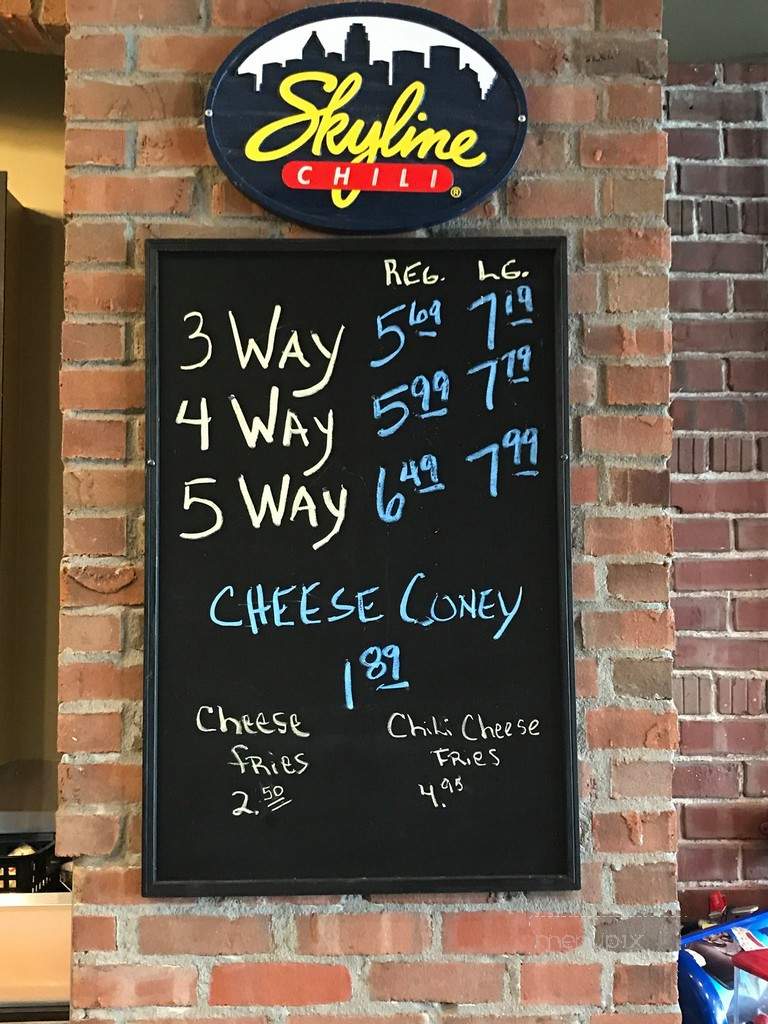 Skyline
CHILI®
REG. LG.
3 WAY 5 69 7 19
4 WAY 5 99 7 79
5 WAY 6 49 7 99
CHEESE CONEY
1 89
Cheese
fRiES
2. 50
Chili Cheese
FRiES
4. 95
menupix